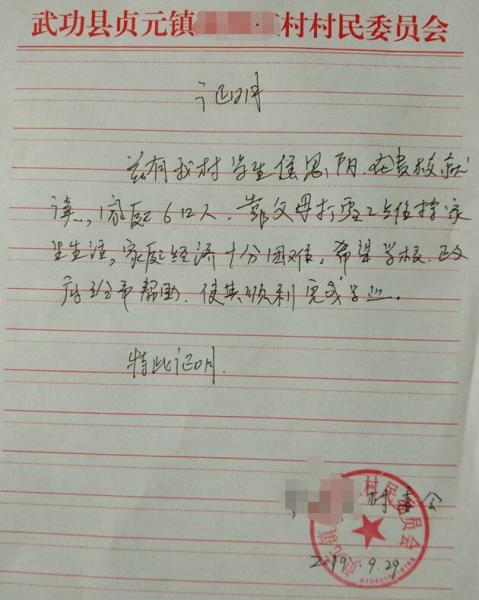 武功县贞元镇 村村民委员会
证明
兹有我村学生任思阳,在贵校就
读,家庭6口人,靠父母打零工维持家
里生活,家庭经济十分困难,希望学校、政
府给予帮助,使其顺利完成学业。
特此证明.
村委会
2019.9.29
村民委员会